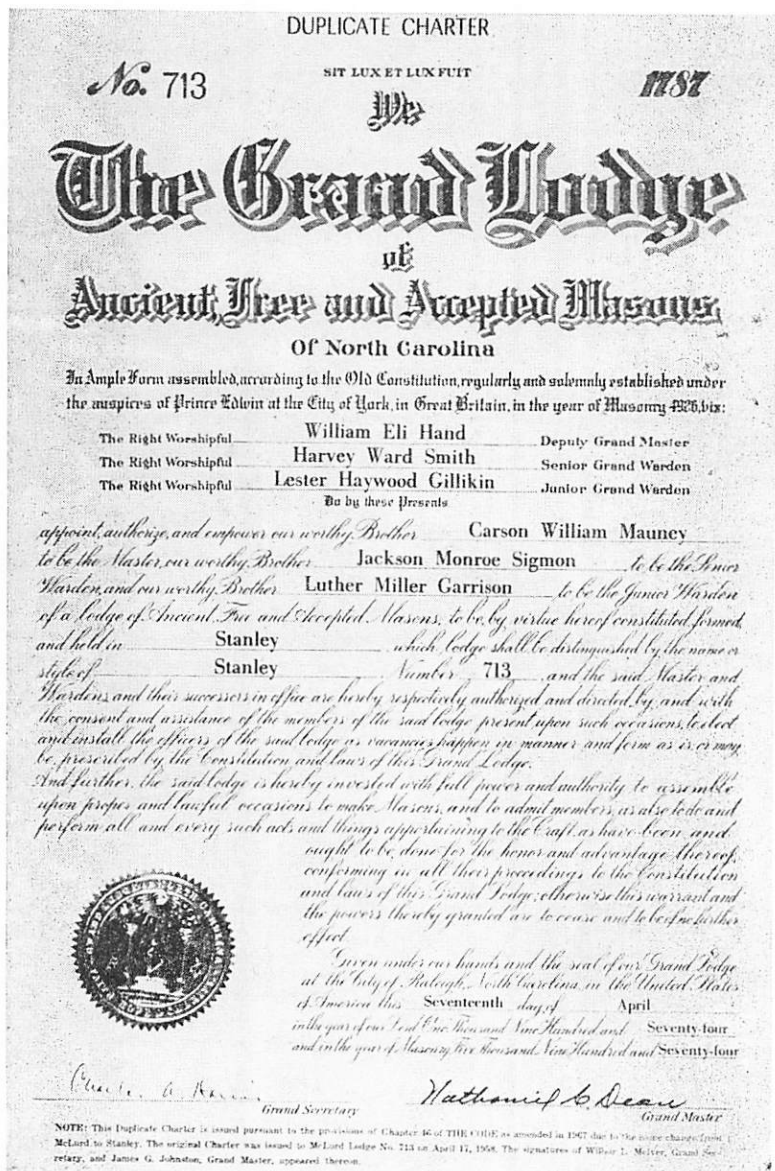 DUPLICATE CHARTER
No. 713
SIT LUX ET LUX FUIT
1787
We
The Grand Lodge
of
Ancient, Free and Accepted Masons
Of North Carolina
In Ample Form assembled, according to the Old Constitution, regularly and solemnly established under
the auspices of Prince Edwin at the City of York, in Great Britain, in the year of Masonry 4926, viz:
The Right Worshipful William Eli Hand Deputy Grand Master
The Right Worshipful Harvey Ward Smith Senior Grand Warden
The Right Worshipful Lester Haywood Gillikin Junior Grand Warden
Do by these Presents
appoint, authorize, and empower our worthy Brother Carson William Mauney
to be the Master, our worthy Brother Jackson Monroe Sigmon to be the Senior
Warden, and our worthy Brother Luther Miller Garrison to be the Junior Warden
of a lodge of Ancient Free and Accepted Masons, to be, by virtue hereof constituted, formed,
and held in Stanley which lodge shall be distinguished by the name or
style of Stanley Number 713 and the said Master and
Wardens, and their successors in office are hereby respectively authorized and directed, by, and with
the consent and assistance of the members of the said lodge present, upon such occasions, to elect
and install the officers of the said lodge as vacancies happen in manner and form as is, or may
be, prescribed by the Constitution and laws of this Grand Lodge.
And further, the said lodge is hereby invested with full power and authority to assemble
upon proper and lawful occasions to make Masons, and to admit members, as also to do and
perform all and every such acts and things appertaining to the Craft, as have been, and
ought to be, done for the honor and advantage thereof,
conforming in all their proceedings to the Constitution
and laws of this Grand Lodge; otherwise this warrant and
the powers thereby granted are to cease and to be of no further
effect.
Given under our hands and the seal of our Grand Lodge
at the City of Raleigh, North Carolina, in the United States
of America this Seventeenth day of April
in the year of our Lord One Thousand Nine Hundred and Seventy-four
and in the year of Masonry Five Thousand Nine Hundred and Seventy-four
Grand Secretary
Nathaniel C Dean
Grand Master
NOTE: This Duplicate Charter is issued pursuant to the provisions of Chapter 46 of THE CODE as amended in 1967 due to the name change from
McLord to Stanley. The original Charter was issued to McLord Lodge No. 713 on April 17, 1958. The signatures of Wilbur L. McIver, Grand Sec-
retary, and James G. Johnston, Grand Master, appeared thereon.